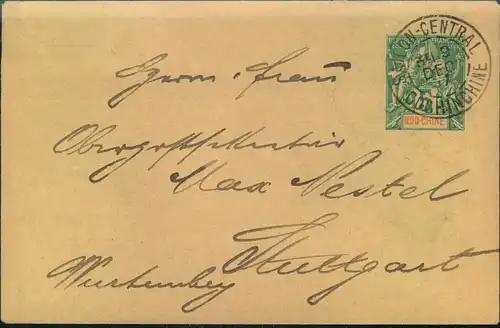 SAIGON-CENTRAL
2
DEC
COCHINCHINE
INDO-CHINE
Herrn Franz
Oberpostsekretär
Max Nestel
Stuttgart
Württemberg